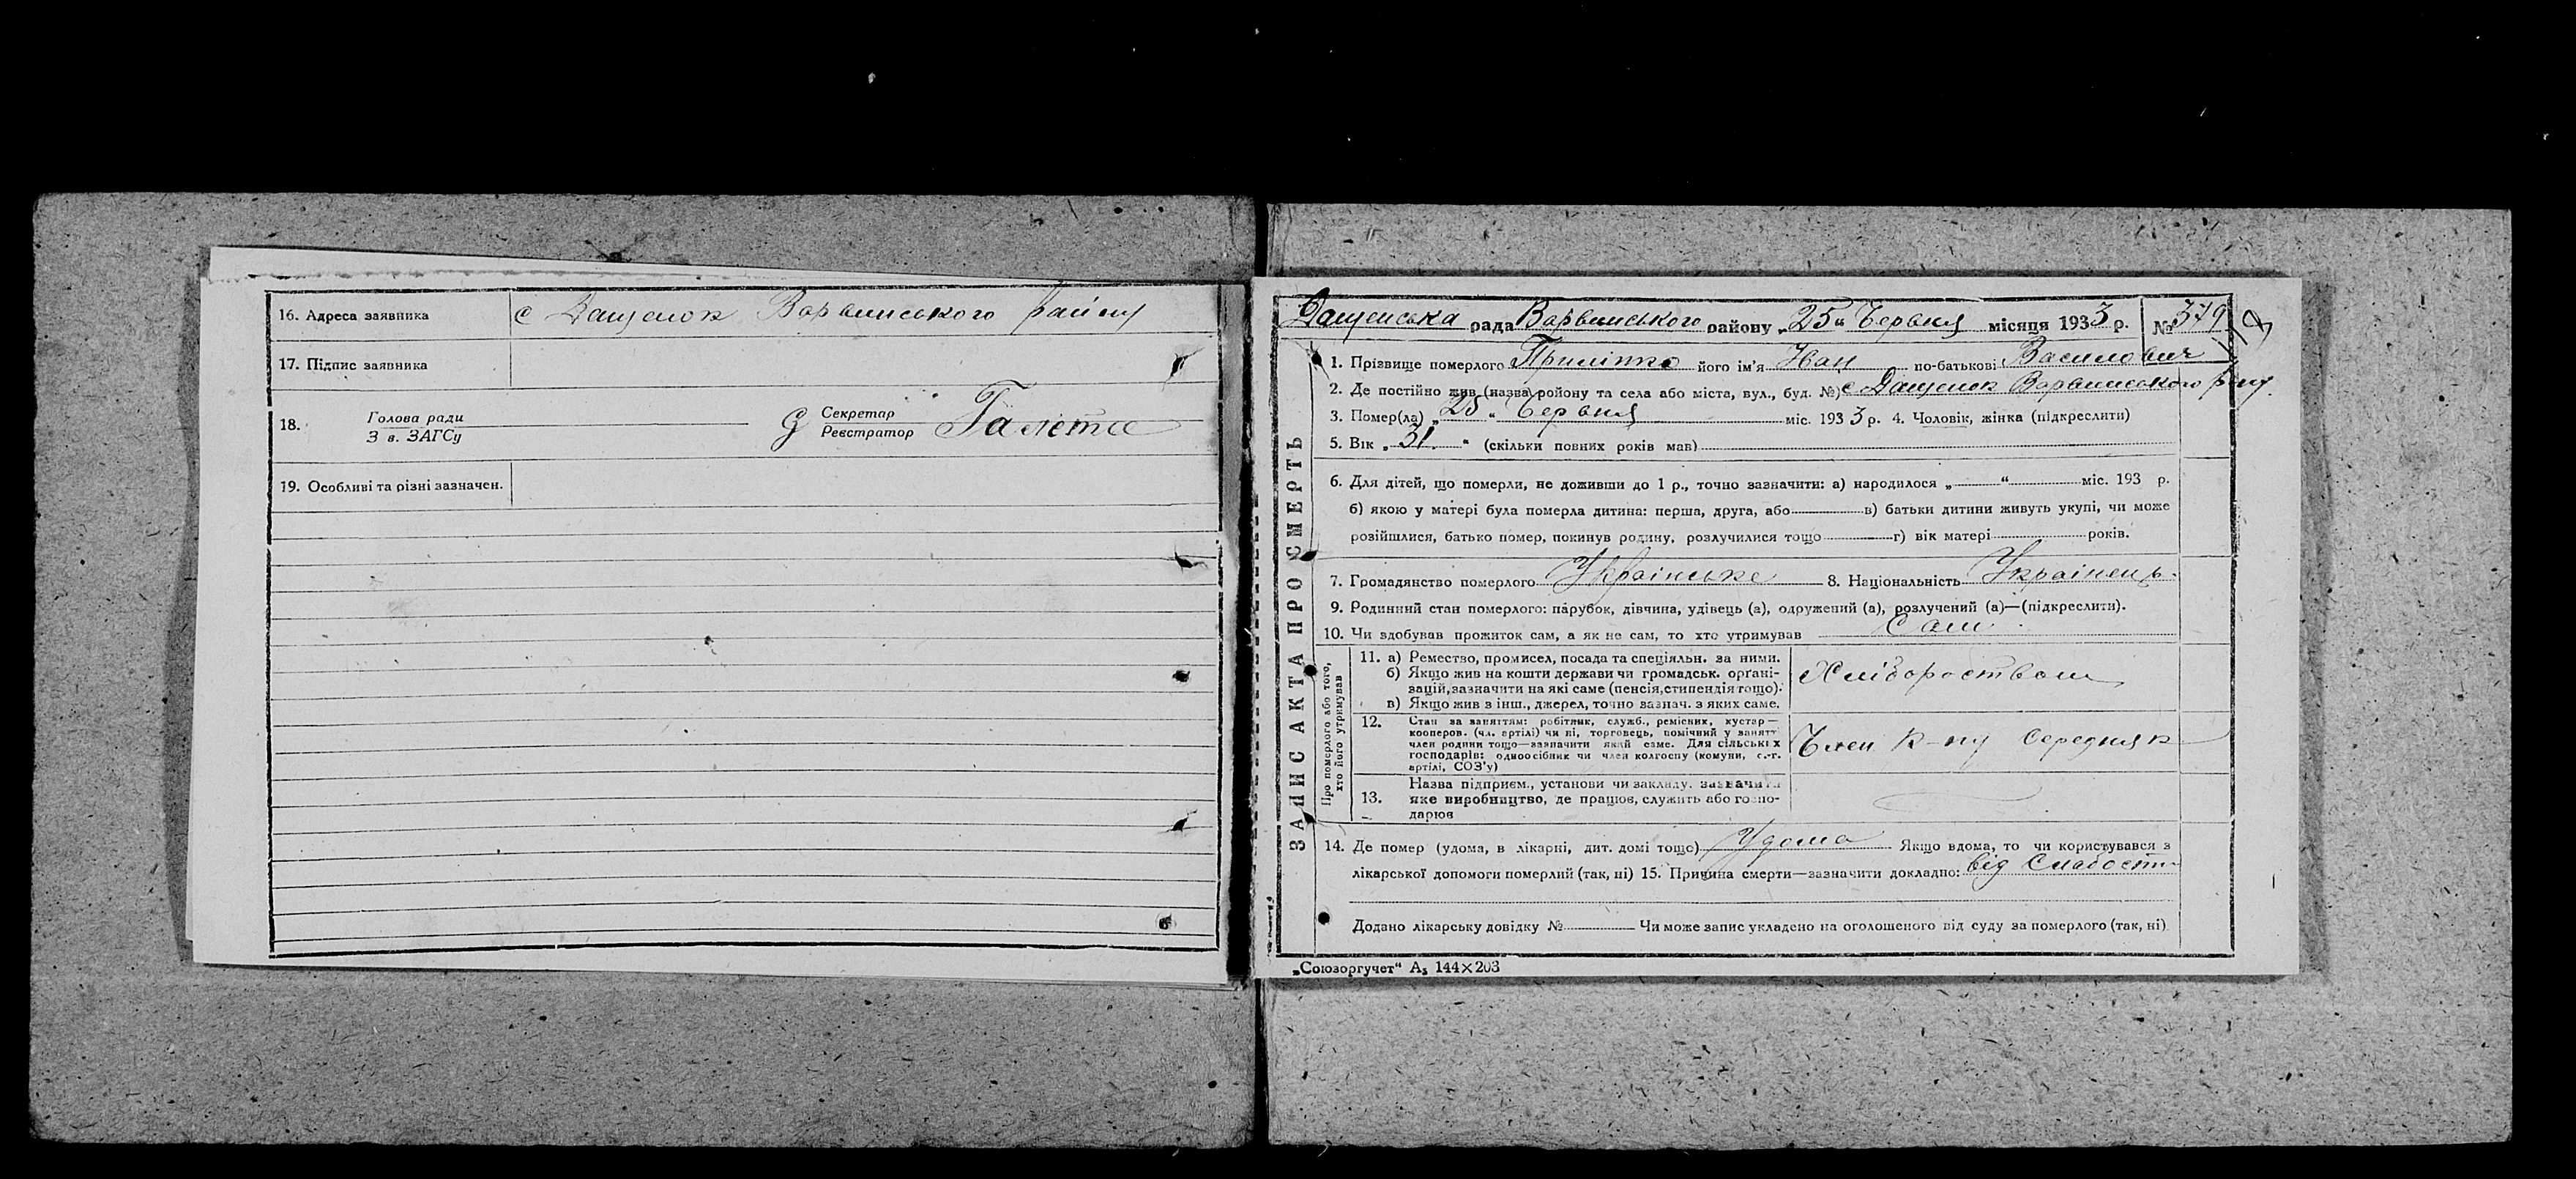 16. Адреса заявника с Дащенок Варвинського району
17. Підпис заявника
18. Голова ради
З в. ЗАГСу
Секретар
Реєстратор
19. Особливі та різні зазначен.
ЗАПИС АКТА ПРО СМЕРТЬ
Дащенська рада Варвинського району „25" Червня місяця 1933 р. № 379
1. Прізвище померлого Приліпко його ім'я Іван по-батькові Василович
2. Де постійно жив (назва ройону та села або міста, вул., буд. №) с Дащенок Варвинського р-ну.
3. Помер(ла) „25" Червня міс. 1933 р. 4. Чоловік, жінка (підкреслити)
5. Вік „31." (скільки повних років мав)
6. Для дітей, що померли, не доживши до 1 р., точно зазначити: а) народилося „ " міс. 193 р.
б) якою у матері була померла дитина: перша, друга, або в) батьки дитини живуть укупі, чи може
розійшлися, батько помер, покинув родину, розлучилися тощо г) вік матері років.
7. Громадянство померлого Українське 8. Національність Українець.
9. Родинний стан померлого: парубок, дівчина, удівець (а), одружений (а), розлучений (а)—(підкреслити).
10. Чи здобував прожиток сам, а як не сам, то хто утримував Сам.
Про померлого або того,
хто його утримував
11. а) Ремество, промисел, посада та спеціяльн. за ними.
б) Якщо жив на кошти держави чи громадськ. органі-
зацій, зазначити на які саме (пенсія, стипендія тощо).
в) Якщо жив з інш., джерел, точно зазнач. з яких саме.
Хліборобством
12. Стан за заняттям: робітник, служб., ремісник, кустар—
кооперов. (чл. артілі) чи ні, торговець, помічний у занятт
член родини тощо—зазначити який саме. Для сільських
господарів: одноосібник чи член колгоспу (комуни, с.-г.
артілі, СОЗ'у)
Член к-пу Середняк
13. Назва підприєм., установи чи закладу. зазначити
яке виробництво, де працюв, служить або госпо-
дарюв
14. Де помер (удома, в лікарні, дит. домі тощо) Удома Якщо вдома, то чи користувався з
лікарської допомоги померлий (так, ні) 15. Причина смерти—зазначити докладно: від Слабости
Додано лікарську довідку № Чи може запис укладено на оголошеного від суду за померлого (так, ні)
„Союзоргучет" А₅ 144×203